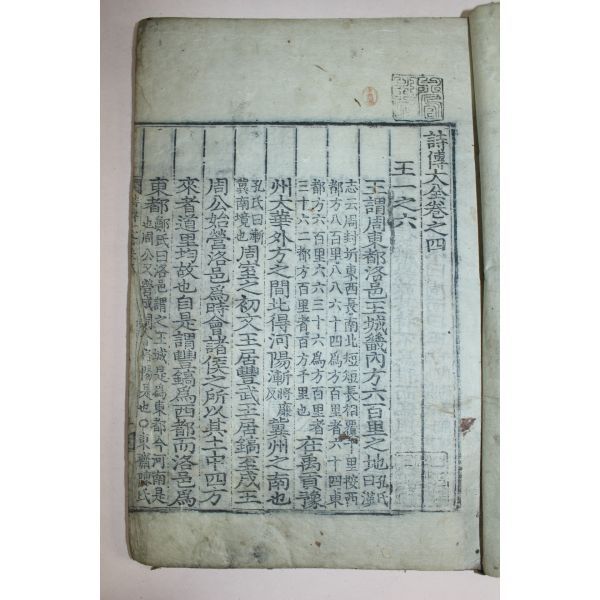 詩傳大全卷之四
王一之六
王謂周東都洛邑王城畿內方六百里之地孔氏曰漢
志云周封圻東西長南北短短長相覆千里按西
都方八百里八八六十四爲方百里者六十四東
都方六百里六六三十六爲方百里者
三十六二都方百里者百方千里也在禹貢豫
州大華外方之間北得河陽漸將廉反冀州之南也
孔氏曰漸冀南境也周室之初文王居豐武王居鎬至成王
周公始營洛邑爲時會諸侯之所以其土中四方
來者道里均故也自是謂豐鎬爲西都而洛邑爲
東都鄭氏曰洛邑謂之王城是爲東都今河南是
也周公又營成周今洛陽是也○東氏